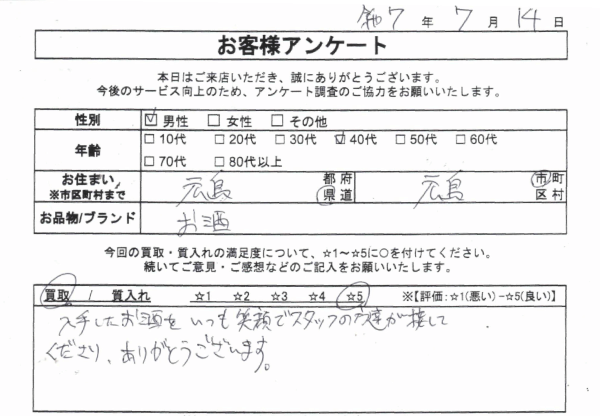 令和7年7月14日
お客様アンケート
本日はご来店いただき、誠にありがとうございます。
今後のサービス向上のため、アンケート調査のご協力をお願いいたします。
性別 ☑男性 □女性 □その他
年齢 □10代 □20代 □30代 ☑40代 □50代 □60代
□70代 □80代以上
お住まい ※市区町村まで 広島 都府県道 広島 市町区村
お品物/ブランド お酒
今回の買取・質入れの満足度について、☆1～☆5に○を付けてください。
続いてご意見・ご感想などのご記入をお願いいたします。
買取 / 質入れ ☆1 ☆2 ☆3 ☆4 ☆5 ※【評価:☆1(悪い)−☆5(良い)】
入手したお酒をいつも笑顔でスタッフの方達が接して
くださり、ありがとうございます。